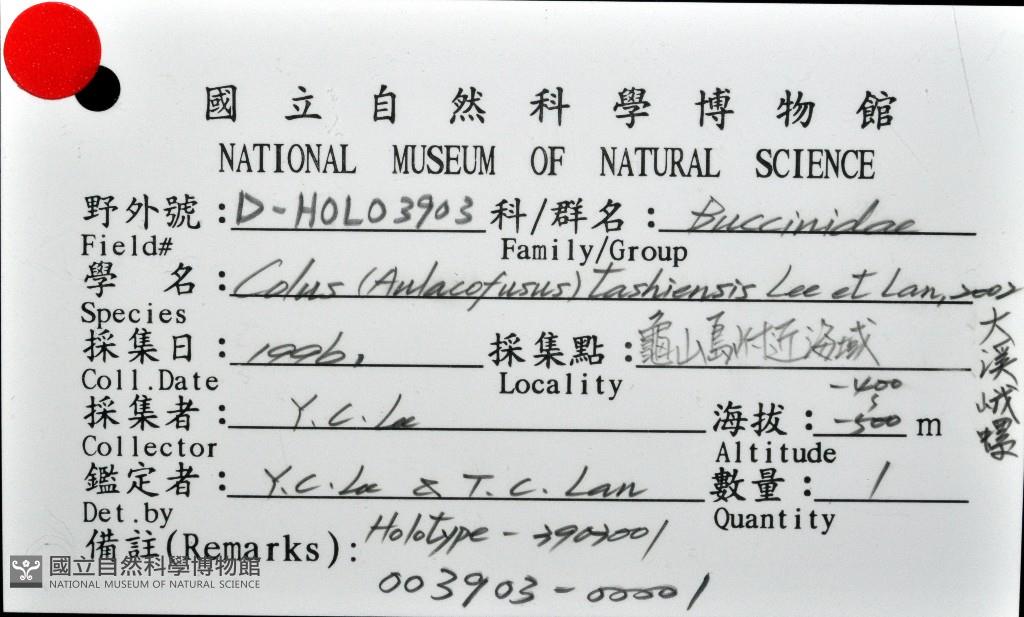 國立自然科學博物館
NATIONAL MUSEUM OF NATURAL SCIENCE
野外號：D-HOLO3903 科/群名：Buccinidae
Field# Family/Group
學 名：Colus (Aulacofusus) tashiensis Lee et Lan, 2002
Species
大溪峨螺
採集日：1996, 採集點：龜山島附近海域
Coll.Date Locality
採集者：Y.C. Lee 海拔：-400 ~ -500 m
Collector Altitude
鑑定者：Y.C. Lee & T.C. Lan 數量：1
Det.by Quantity
備註(Remarks)：Holotype-3903001
003903-00001
國立自然科學博物館
NATIONAL MUSEUM OF NATURAL SCIENCE